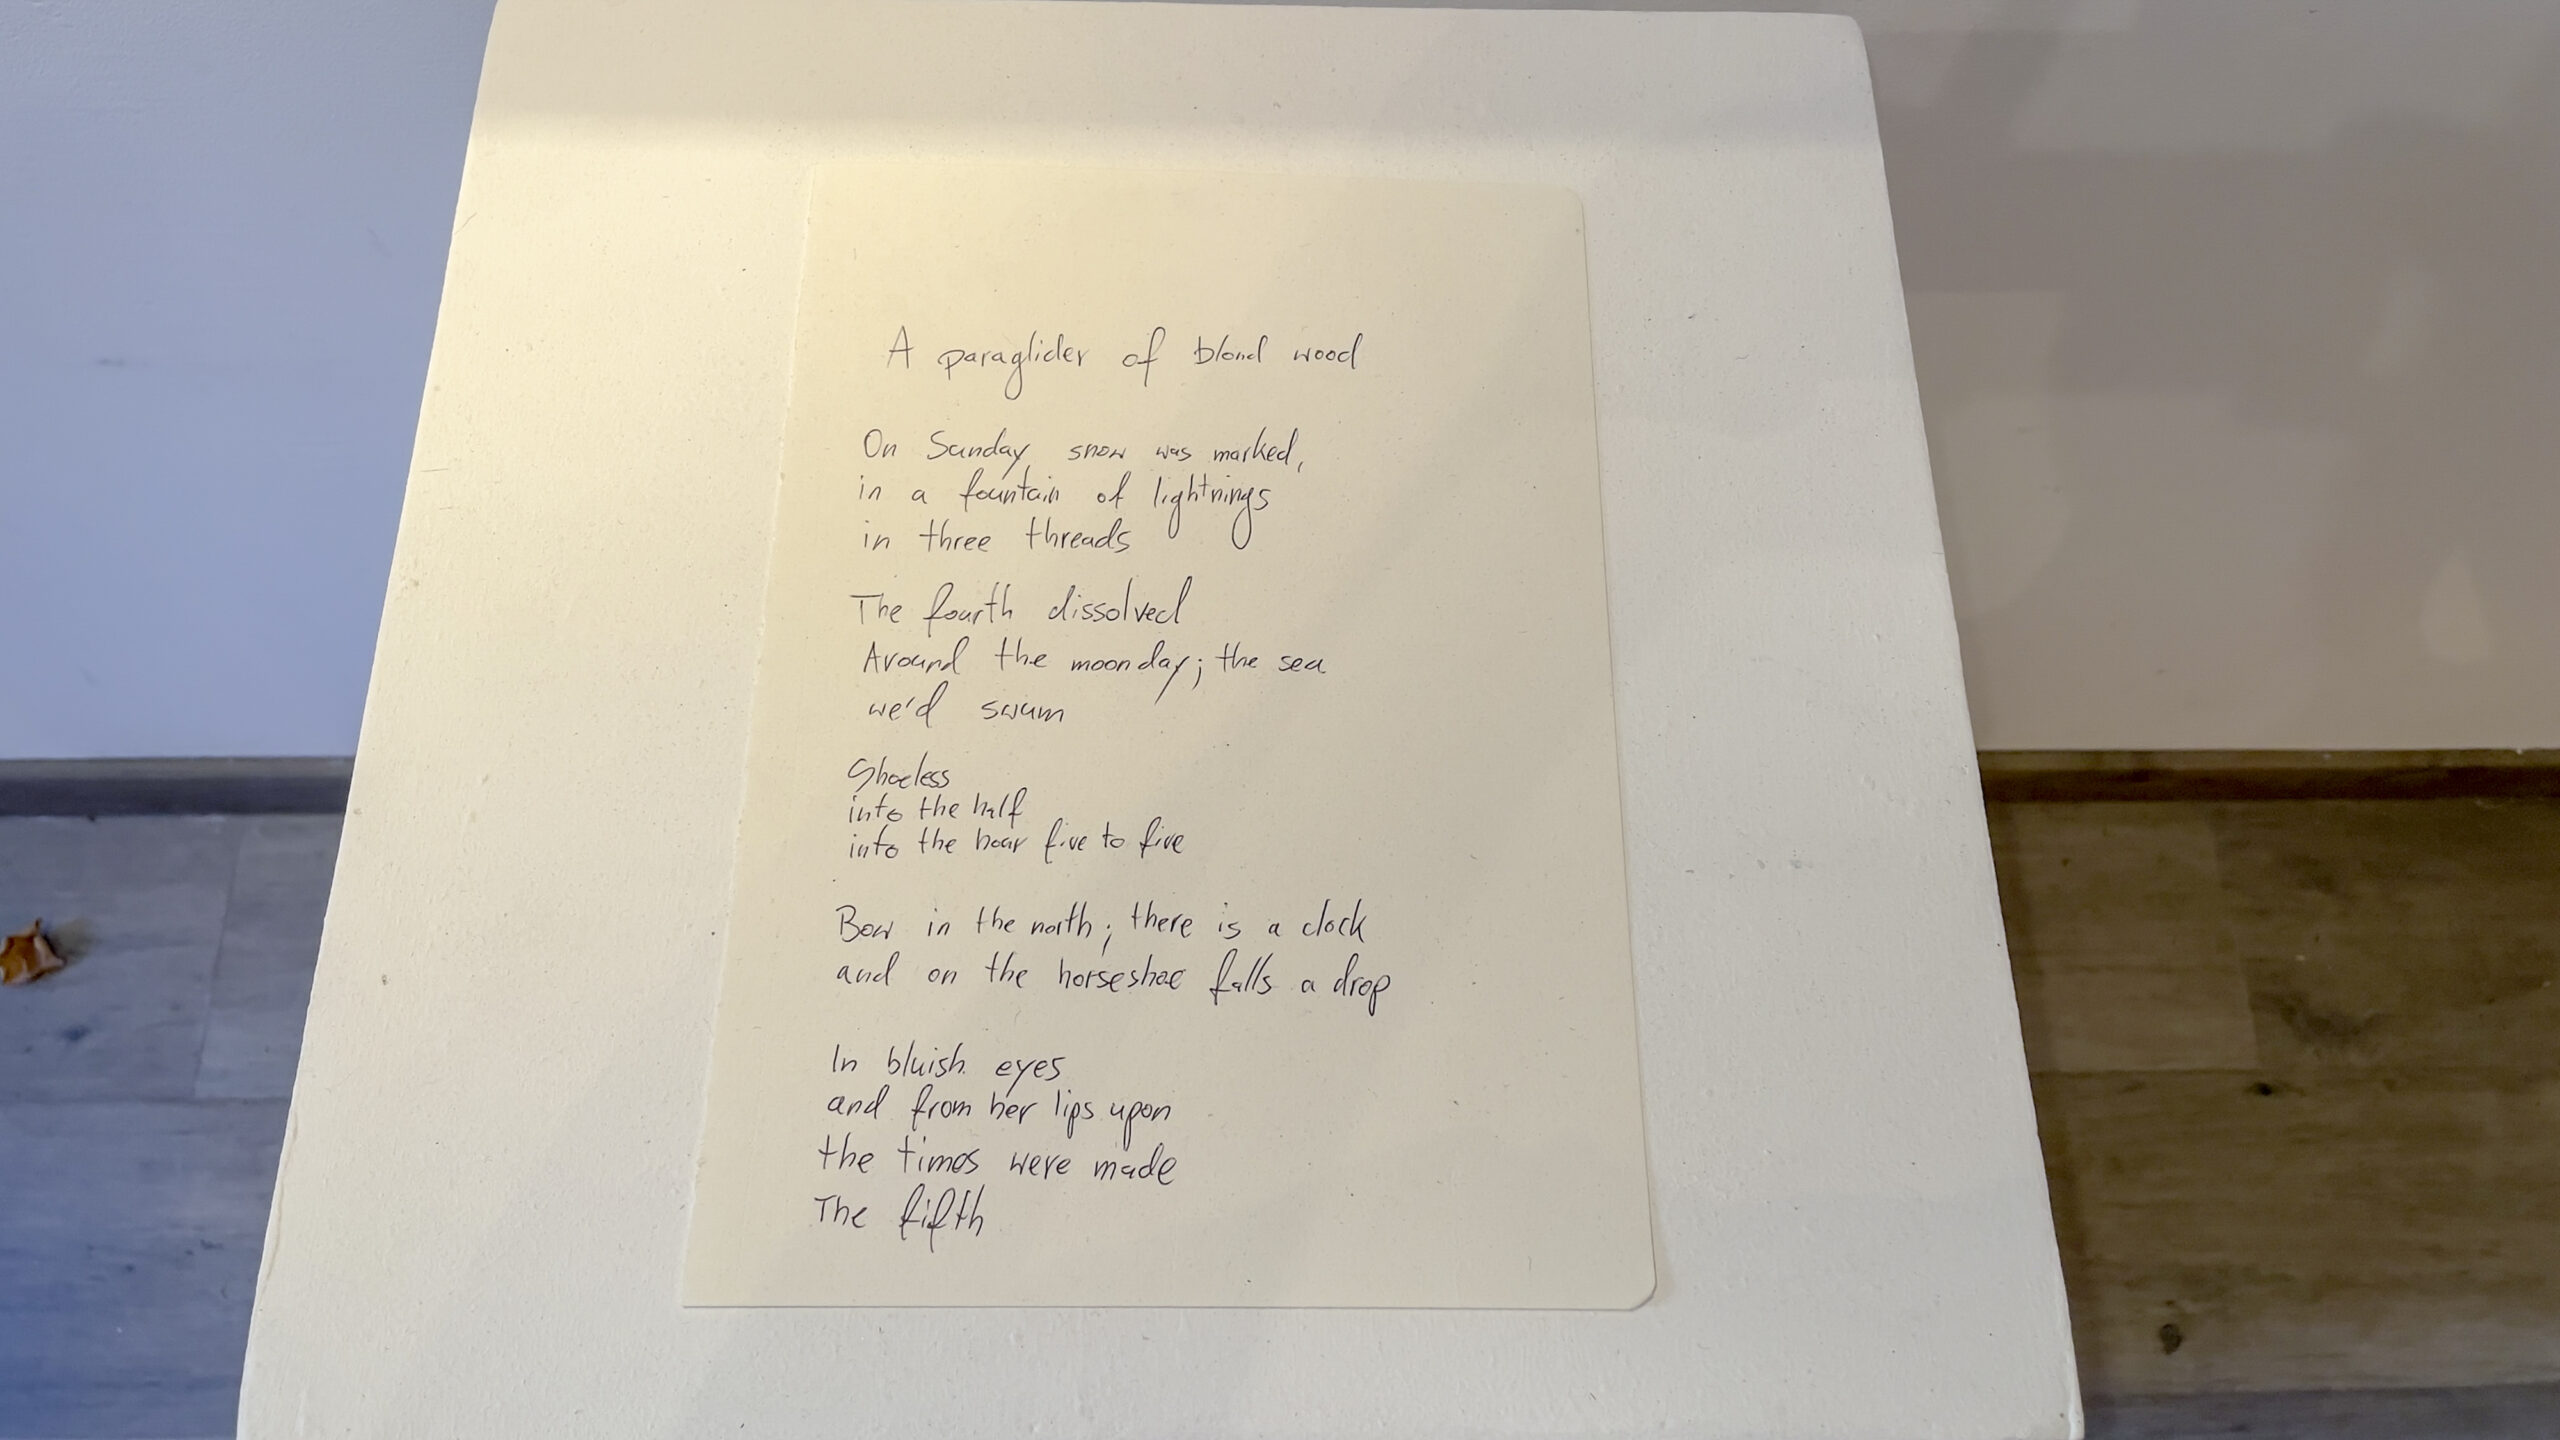 A paraglider of blond wood
On Sunday snow was marked,
in a fountain of lightnings
in three threads
The fourth dissolved
Around the moonday; the sea
we'd swum
Shoeless
into the half
into the hour five to five
Bow in the north; there is a clock
and on the horseshoe falls a drop
In bluish eyes
and from her lips upon
the times were made
The fifth